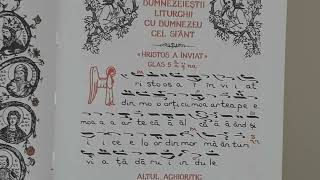 DUMNEZEIEȘTII
LITURGHII
CU DUMNEZEU
CEL SFÂNT
«HRISTOS A ÎNVIAT»
GLAS 5
ristosa în vi at
din mo o orți cu moa artea pe e
moa a a ar te că ăl câ ă ă ând și
i i ce e lor din mor mâ ân turi
vi a ță dă ru i in du le
ALTUL, AGHIORITIC